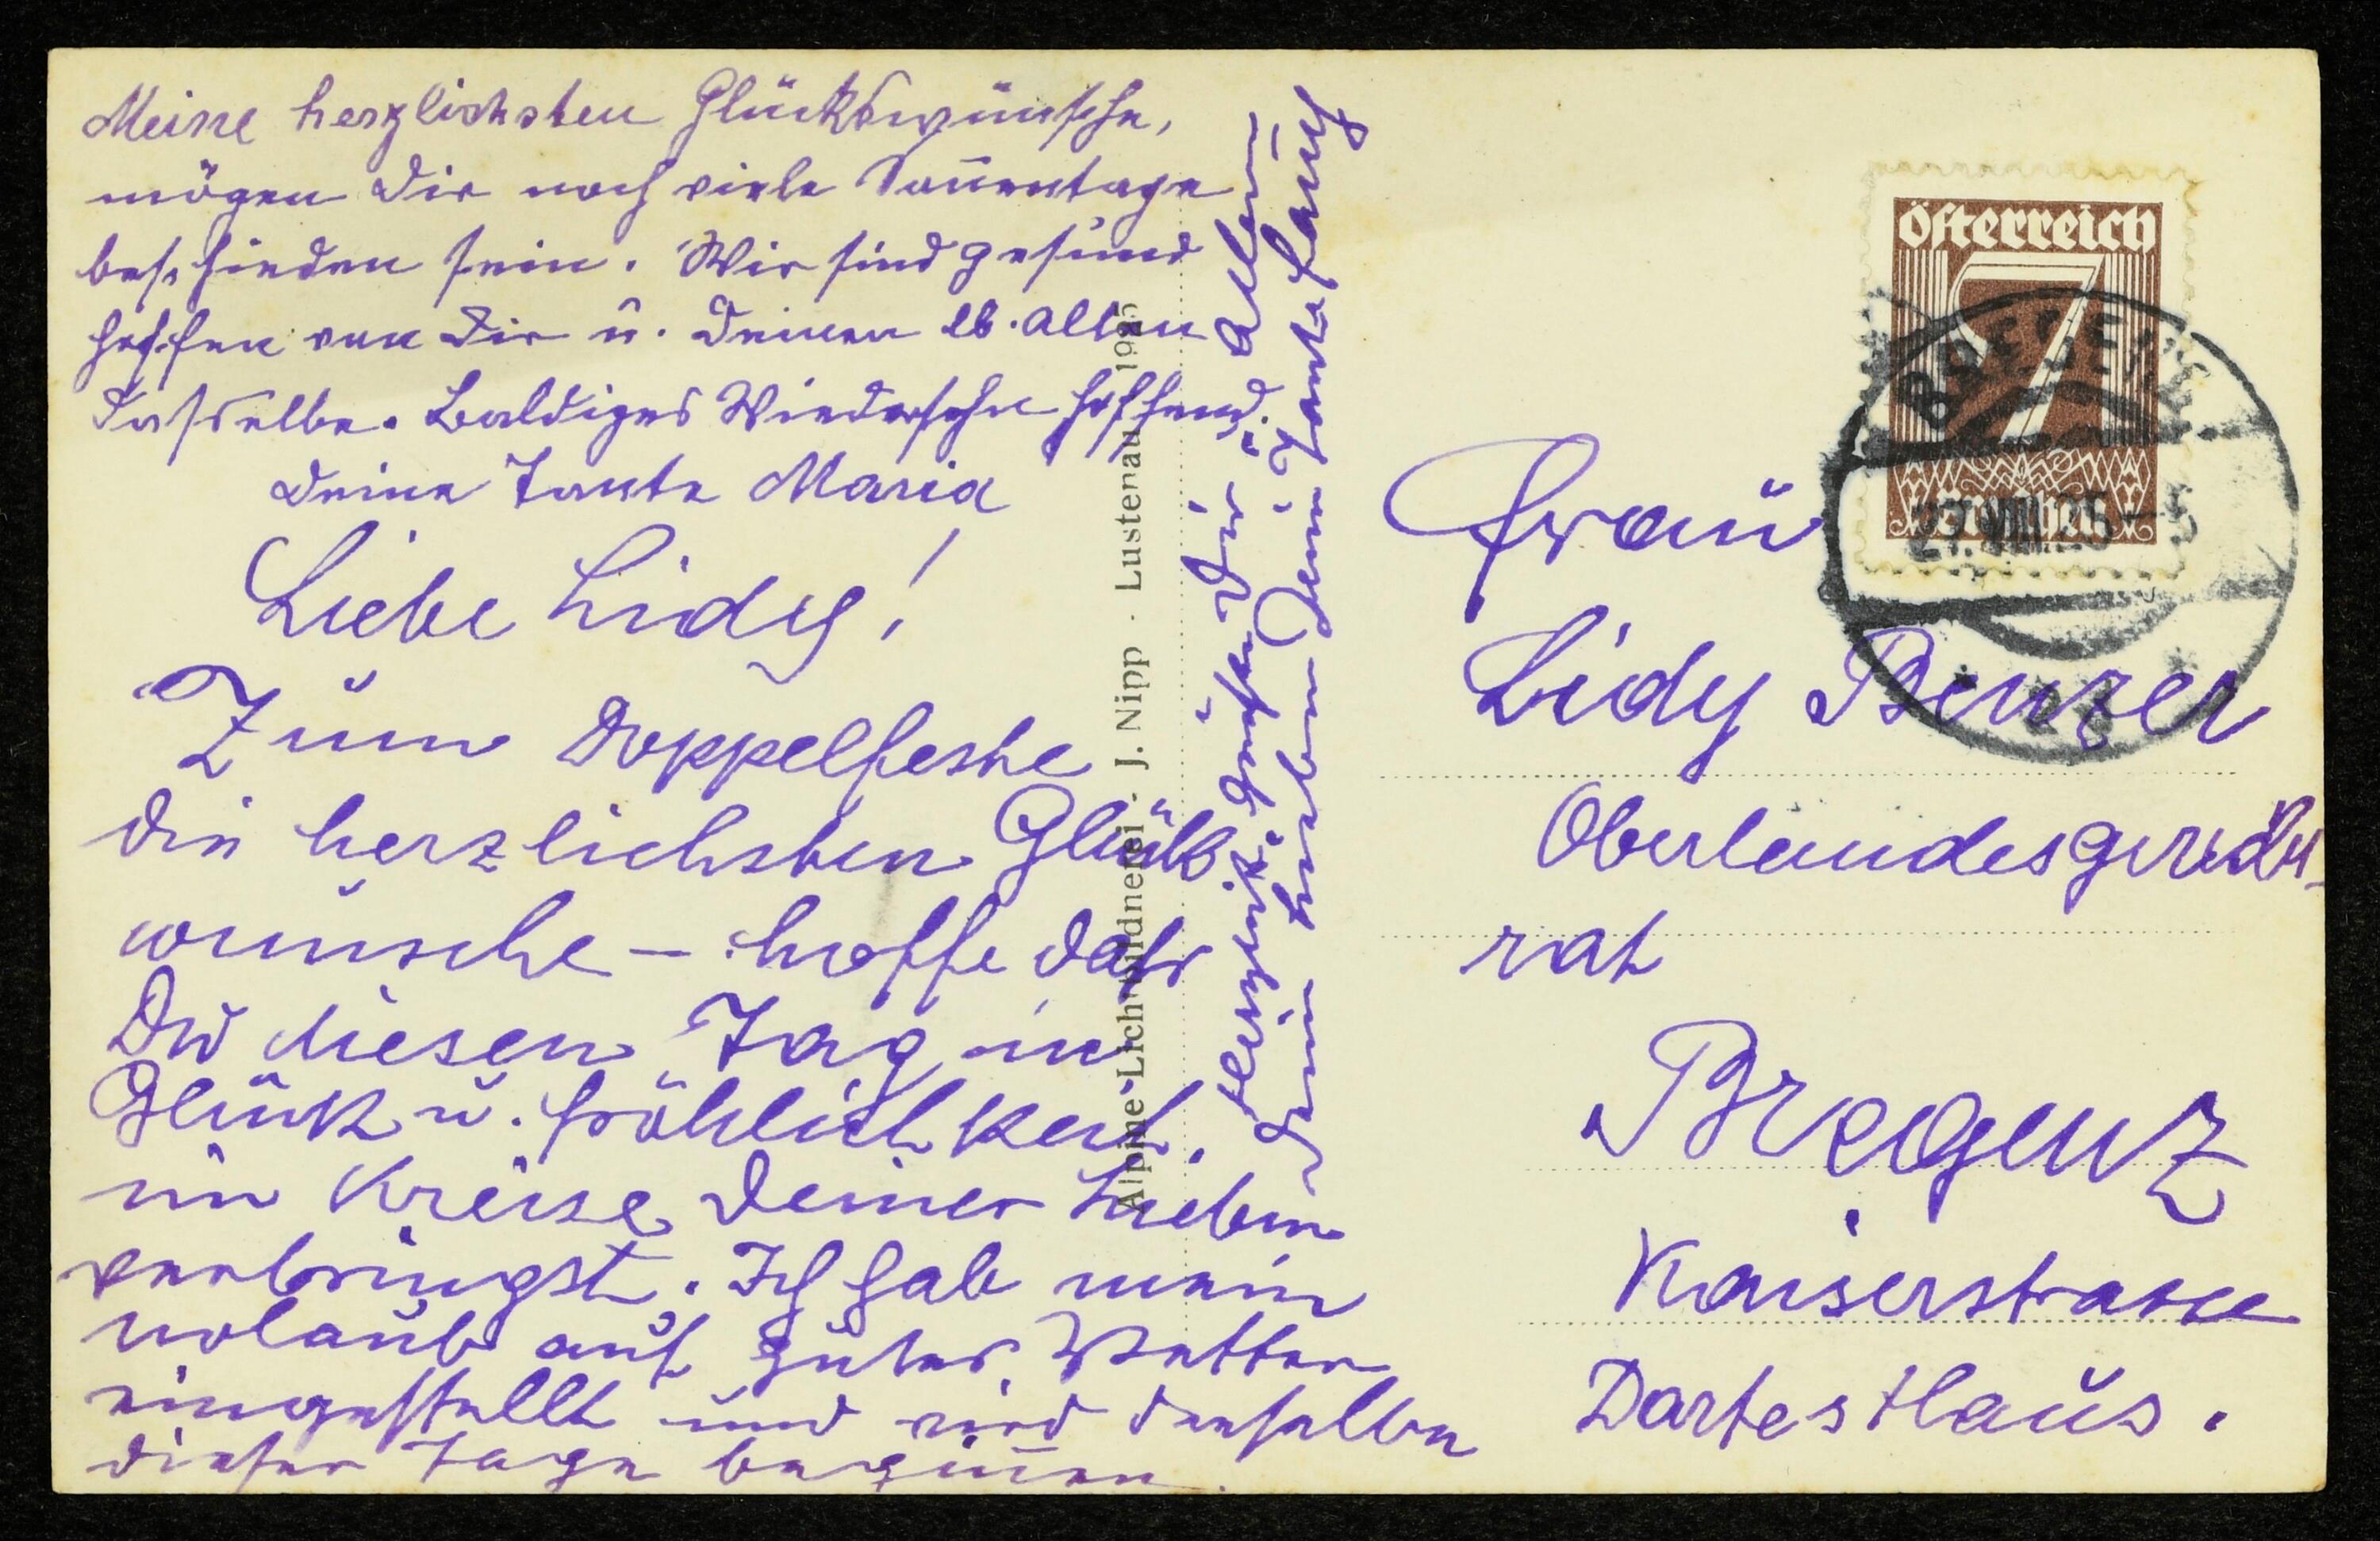 Meine herzlichsten Glückswünsche,
mögen Dir noch viele Sonnentage
beschieden sein. Wir sind gesund
hoffen von Dir u. Deinen lb. Allen
dasselbe. Baldiges Wiedersehn hoffend.
Deine Tante Maria
Liebe Lidy!
Zum Doppelfeste
die herzlichsten Glück
wünsche – hoffe dass
Du diesen Tag in
Glück u. Fröhlichkeit.
im Kreise Deiner Lieben
verbringst. Ich hab mein
Urlaub auf gutes Wetter
eingestellt und wird derselbe
dieser Tage beginnen.
Herzlichst grüßen Dir u. Allen
Deine
Alpine Lichtbildnerei - J. Nipp · Lustenau 1925
Österreich
7
Groschen
BREGENZ
27.VIII.25–5
Frau
Lidy Benzer
Oberlandesgerichts-
rat
Bregenz
Kaiserstrasse
Haus.